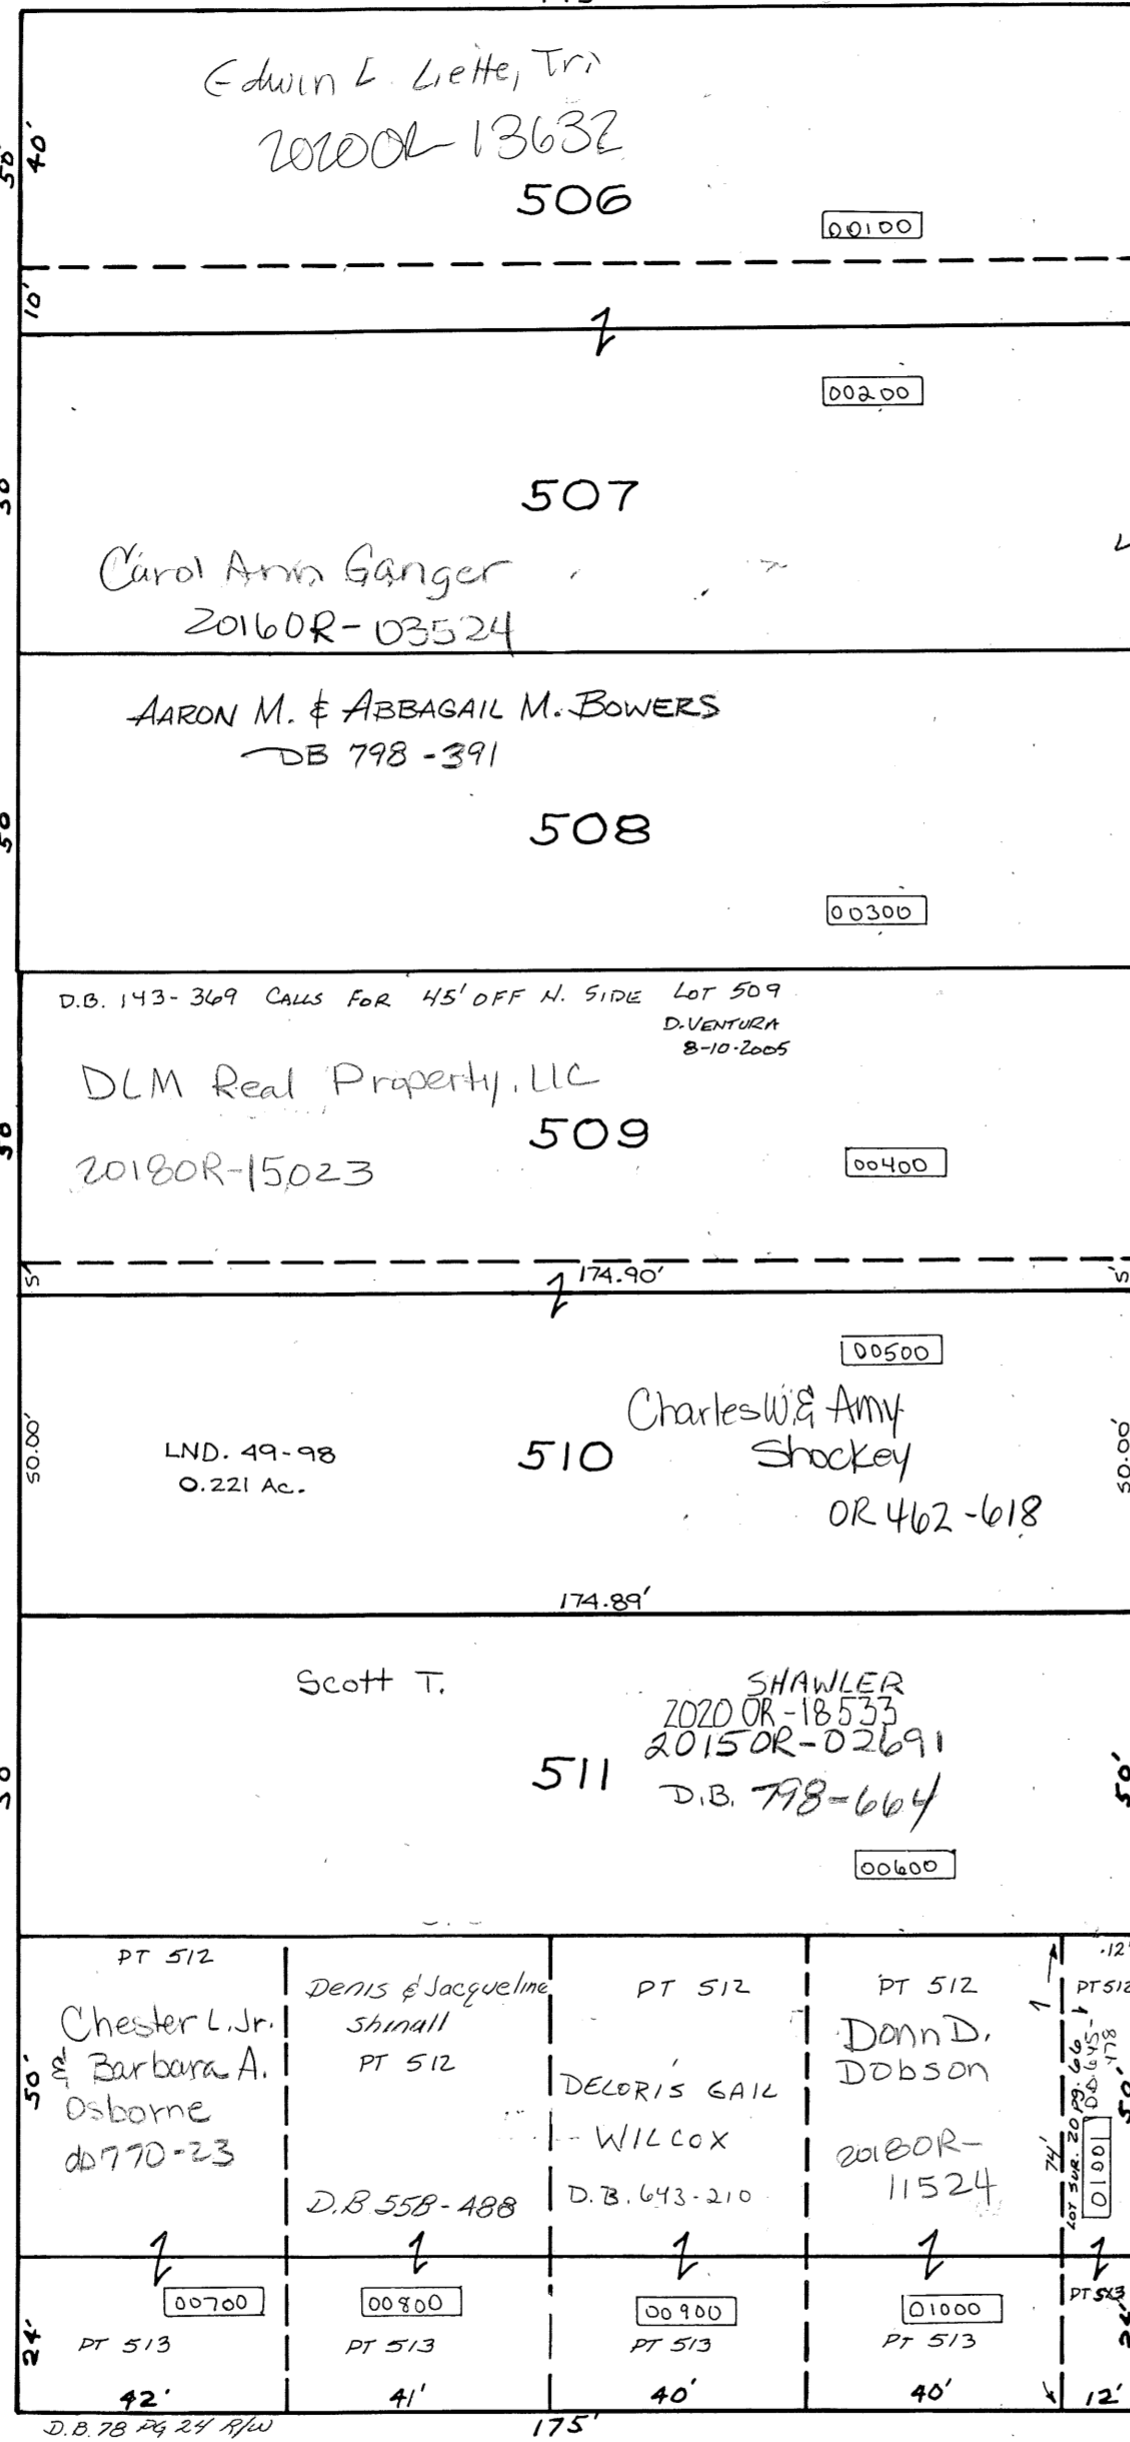 Edwin L. Liette, Tri
2020OR-13632
50'
40'
506
00100
10'
00200
507
Carol Ann Ganger
2016OR-03524
AARON M. & ABBAGAIL M. BOWERS
DB 798-391
50
508
00300
D.B. 143-369 CALLS FOR 45' OFF N. SIDE LOT 509
D. VENTURA
8-10-2005
DLM Real Property, LLC
509
2018OR-15023
00400
5'
174.90'
5'
00500
Charles W. & Amy
Shockey
50.00'
LND. 49-98
0.221 Ac.
510
50.00'
OR 462-618
174.89'
Scott T. SHAWLER
2020 OR-18533
2015OR-02691
511
50'
D.B. 798-664
00600
PT 512
Chester L. Jr.
& Barbara A.
Osborne
db770-23
50'
Denis & Jacqueline
Shinall
PT 512
D.B 558-488
PT 512
DELORIS GAIL
WILCOX
D.B. 643-210
PT 512
Donn D.
Dobson
2018OR-
11524
74'
LOT SUR. 20 PG. 66
12'
PT 512
D.B. 645-
478
50'
01001
24'
00700
PT 513
42'
00800
PT 513
41'
00900
PT 513
40'
01000
PT 513
40'
PT 513
24'
12'
D.B. 78 PG 24 R/W
175'